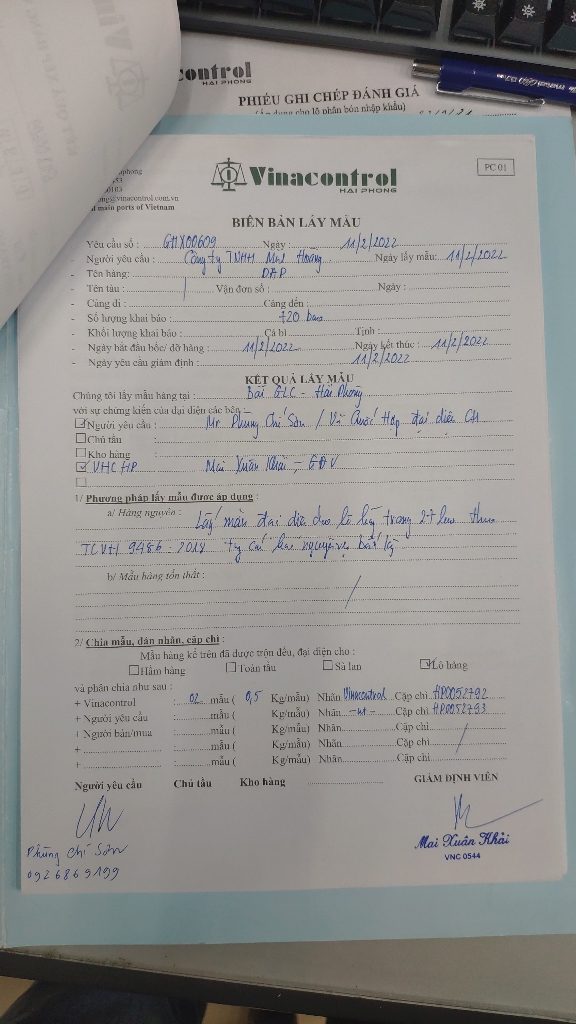 control
HAI PHONG
PHIẾU GHI CHÉP ĐÁNH GIÁ
dụng cho lô phân bón nhập khẩu)
Vinacontrol
HAI PHONG
PC 01
@vinacontrol.com.vn
main ports of Vietnam
BIÊN BẢN LẤY MẪU
- Yêu cầu số : GHX00609 Ngày : 11/2/2022
- Người yêu cầu : Công ty TNHH Hoàng Ngày lấy mẫu: 11/2/2022
- Tên hàng: DAP
- Tên tàu : / Vận đơn số : Ngày :
- Cảng đi : Cảng đến :
- Số lượng khai báo : 720 bao
- Khối lượng khai báo : Cả bì : Tịnh :
- Ngày bắt đầu bốc/ dỡ hàng : 11/2/2022 Ngày kết thúc : 11/2/2022
- Ngày yêu cầu giám định : 11/2/2022
KẾT QUẢ LẤY MẪU
Chúng tôi lấy mẫu hàng tại : Bãi GLC - Hải Phòng
với sự chứng kiến của đại diện các bên :
☑ Người yêu cầu : Mr Phùng Chí Sơn / Vũ Quốc Hợp đại diện CH
☐ Chủ tầu :
☐ Kho hàng :
☑ VHC HP Mai Xuân Khải - GĐV
☐
1/ Phương pháp lấy mẫu được áp dụng :
a/ Hàng nguyên : Lấy mẫu đại diện cho lô hàng trong 27 bao theo
TCVN 9486 : 2018 bao nguyên vẹn bất kỳ
b/ Mẫu hàng tổn thất : /
2/ Chia mẫu, dán nhãn, cặp chì :
Mẫu hàng kể trên đã được trộn đều, đại diện cho :
☐ Hầm hàng ☐ Toàn tầu ☐ Sà lan ☑ Lô hàng
và phân chia như sau :
+ Vinacontrol : 02 mẫu ( 0,5 Kg/mẫu) Nhãn Vinacontrol Cặp chì HP0052792
+ Người yêu cầu : mẫu ( Kg/mẫu) Nhãn -nt- Cặp chì HP0052793
+ Người bán/mua : mẫu ( Kg/mẫu) Nhãn Cặp chì
+ : mẫu ( Kg/mẫu) Nhãn Cặp chì /
+ : mẫu ( Kg/mẫu) Nhãn Cặp chì
Người yêu cầu Chủ tầu Kho hàng GIÁM ĐỊNH VIÊN
Phùng Chí Sơn
0926869199
Mai Xuân Khải
VNC 0544